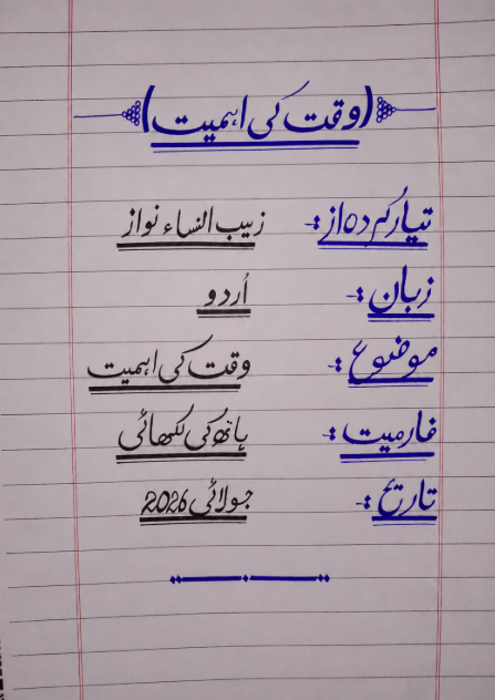 (وقت کی اہمیت)
تیار کردہ از :- زیب النساء نواز
زبان :- اُردو
موضوع :- وقت کی اہمیت
فارمیٹ :- ہاتھ کی لکھائی
تاریخ :- جولائی 2026